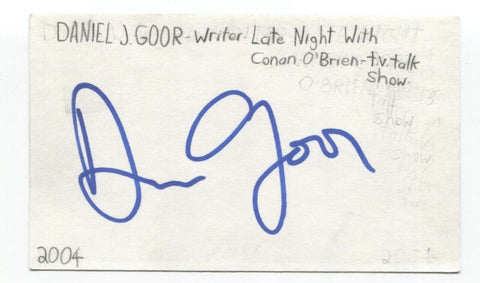 DANIEL J. GOOR - Writer Late Night With
Conan O'Brien - t.v. talk
show.
Dan Goor
2004